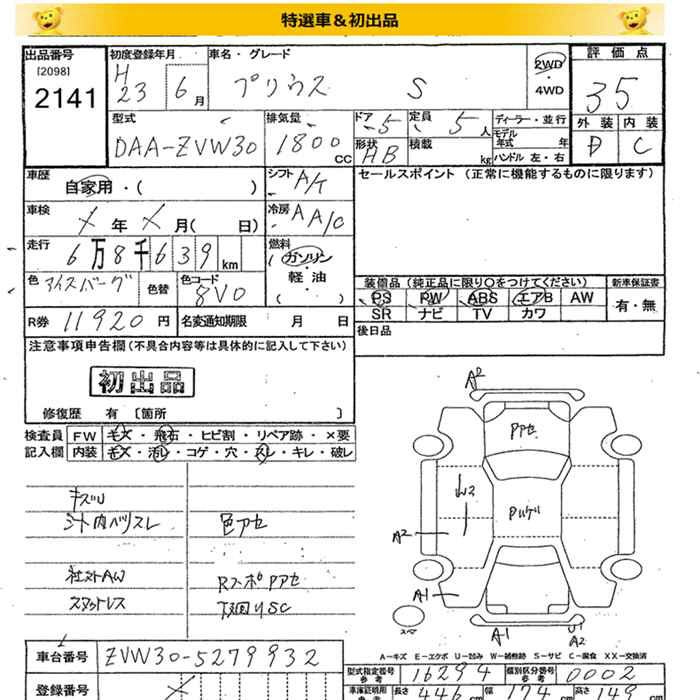 特選車＆初出品
出品番号
[2098]
2141
初度登録年月
H 23 6月
車名・グレード
プリウス S
2WD・4WD
評価点
35
外装 内装
D C
型式
DAA-ZVW30
排気量
1800 CC
ドア 5
定員 5人
ディーラー・並行
モデル年式 年
形状 HB
積載 kg
ハンドル 左・右
車歴
自家用・( )
シフト A/T
セールスポイント (正常に機能するものに限ります)
車検
メ年 メ月( 日)
冷房 AA/C
走行
6万8千639km
燃料
ガソリン
軽油
( )
色 アイスバーグ
色替
色コード 8V0
装備品 (純正品に限り○をつけてください)
新車保証書
PS PW ABS エアB AW
有・無
SR ナビ TV カワ
R券 11920円
名変通知期限 月 日
後日品
注意事項申告欄 (不具合内容等は具体的に記入して下さい)
初出品
修復歴 有 〔箇所 〕
検査員記入欄
FW キズ・飛石・ヒビ割・リペア跡・×要
内装 キズ・汚レ・コゲ・穴・スレ・キレ・破レ
キズU
シート内ベリスレ
色アセ
社外AW
スタットレス
RスポPアセ
下回りSC
A2
Pアセ
W2
A2
A1
スペア
A1
U1
A2
A－キズ E－エクボ U－凹み W－補修跡 S－サビ C－腐食 XX－交換済
車台番号
ZVW30-5279932
型式指定番号参考 16294
類別区分番号参考 0002
登録番号
メ
車庫証明用参考
長さ 446cm
幅 174cm
高さ 149